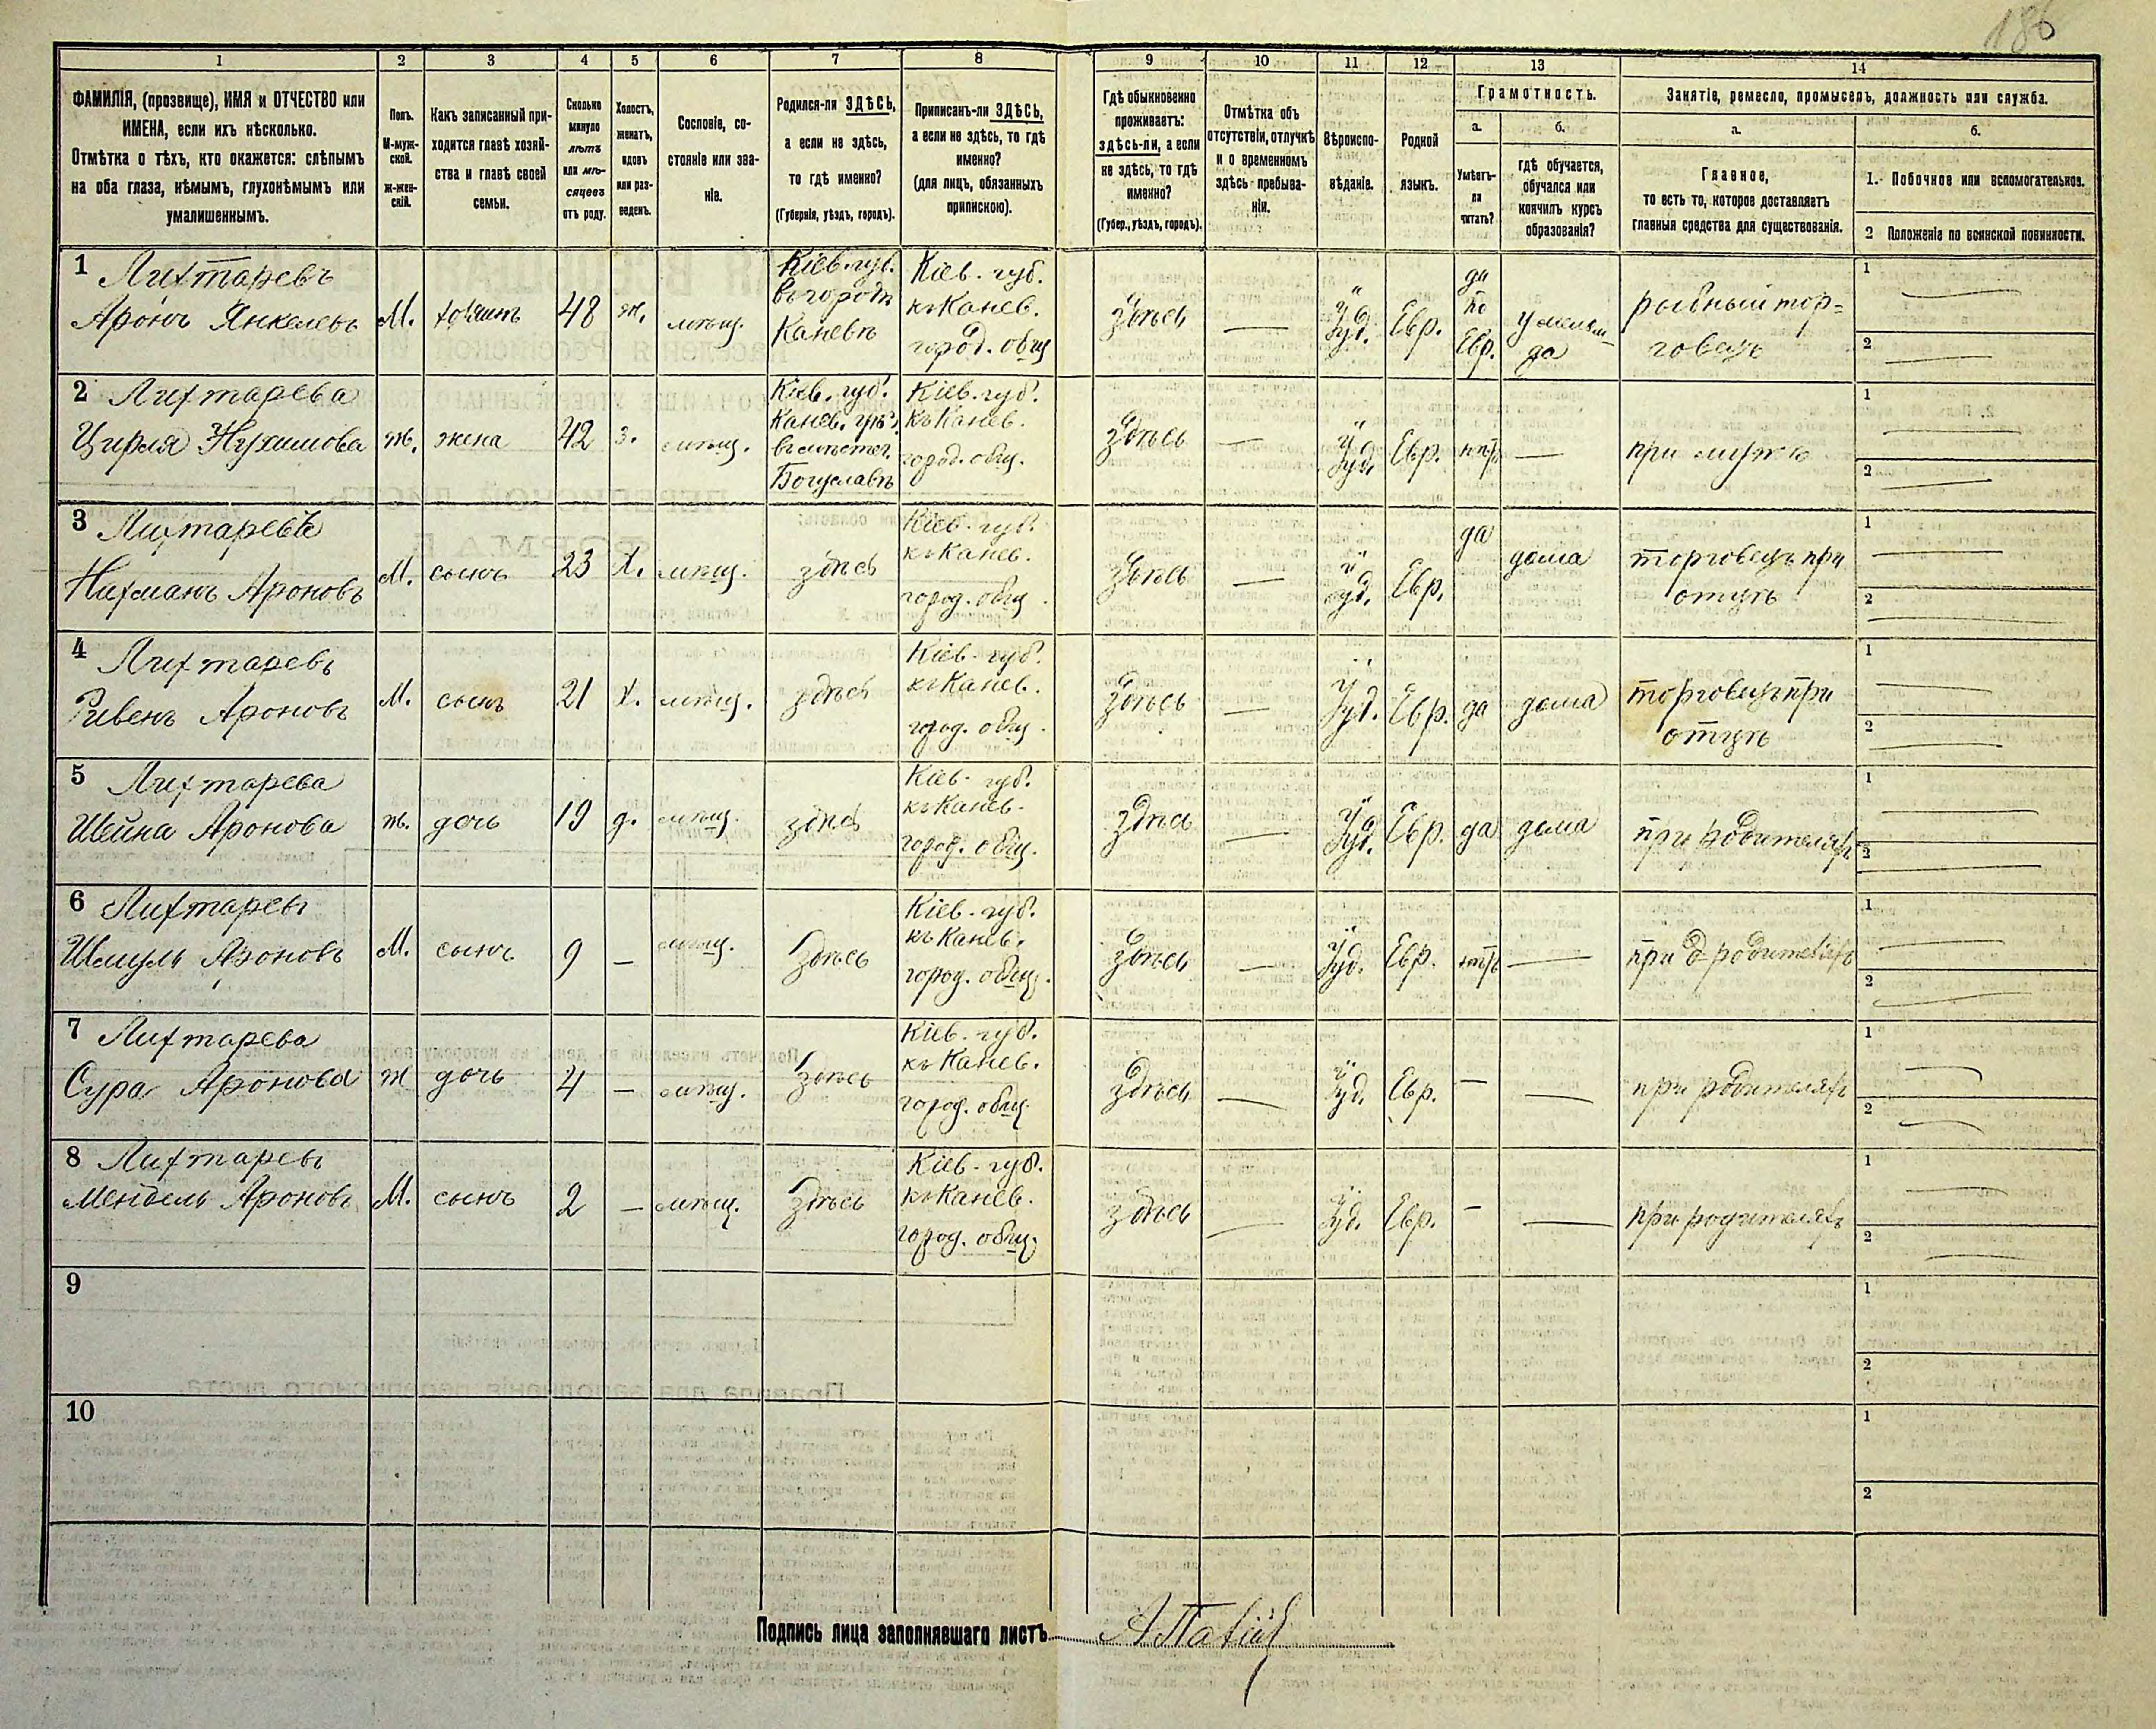 186
1 2 3 4 5 6 7 8 9 10 11 12 13 14
ФАМИЛІЯ, (прозвище), ИМЯ и ОТЧЕСТВО или
ИМЕНА, если ихъ нѣсколько.
Отмѣтка о тѣхъ, кто окажется: слѣпымъ
на оба глаза, нѣмымъ, глухонѣмымъ или
умалишеннымъ.
Полъ.
М-муж-
ской.
ж-жен-
скій.
Какъ записанный при-
ходится главѣ хозяй-
ства и главѣ своей
семьи.
Сколько
минуло
лѣтъ
или мѣ-
сяцевъ
отъ роду.
Холостъ,
женатъ,
вдовъ
или раз-
веденъ.
Сословіе, со-
стояніе или зва-
ніе.
Родился-ли ЗДѢСЬ,
а если не здѣсь,
то гдѣ именно?
(Губернія, уѣздъ, городъ).
Приписанъ-ли ЗДѢСЬ,
а если не здѣсь, то гдѣ
именно?
(для лицъ, обязанныхъ
припискою).
Гдѣ обыкновенно
проживаетъ:
здѣсь-ли, а если
не здѣсь, то гдѣ
именно?
(Губер., уѣздъ, городъ).
Отмѣтка объ
отсутствіи, отлучкѣ
и о временномъ
здѣсь пребыва-
ніи.
Вѣроиспо-
вѣданіе.
Родной
языкъ.
Грамотность.
а.
Умѣетъ-
ли
читать?
б.
гдѣ обучается,
обучался или
кончилъ курсъ
образованія?
Занятіе, ремесло, промыселъ, должность или служба.
а.
Главное,
то есть то, которое доставляетъ
главныя средства для существованія.
б.
1. Побочное или вспомогательное.
2 Положеніе по воинской повинности.
1 Лихтаревъ
Аронъ Янкелевъ
М.
48
ж.
мѣщ.
Кіев. губ.
въ городѣ
Каневѣ
Кіев. губ.
къ Канев.
город. общ
Здѣсь
—
Іуд.
Евр.
да
по
Евр.
рыбный тор=
говецъ
1 —
2 —
2 Лихтарева
Цирля Нухимова
ж.
жена
42
з.
мѣщ.
Кіев. губ.
Канев. уѣз.
въ мѣстеч.
Богуславѣ
Кіев. губ.
къ Канев.
город. общ.
здѣсь
—
Іуд.
Евр.
нѣтъ
—
при мужѣ
1 —
2 —
3 Лихтаревъ
Нахманъ Ароновъ
М.
сынъ
23
х.
мѣщ.
здѣсь
Кіев. губ.
къ Канев.
город. общ.
здѣсь
—
Іуд.
Евр.
да
дома
торговецъ при
отцѣ
1 —
2 —
4 Лихтаревъ
Ривенъ Ароновъ
М.
сынъ
21
х.
мѣщ.
здѣсь
Кіев. губ.
къ Канев.
город. общ.
здѣсь
—
Іуд.
Евр.
да
дома
торговецъ при
отцѣ
1 —
2 —
5 Лихтарева
Шейна Аронова
ж.
дочь
19
д.
мѣщ.
здѣсь
Кіев. губ.
къ Канев.
город. общ.
здѣсь
—
Іуд.
Евр.
да
дома
при родителяхъ
1 —
2 —
6 Лихтаревъ
Шмуль Ароновъ
М.
сынъ
9
—
мѣщ.
здѣсь
Кіев. губ.
къ Канев.
город. общ.
здѣсь
—
Іуд.
Евр.
нѣтъ
—
при родителяхъ
1 —
2 —
7 Лихтарева
Сура Аронова
ж
дочь
4
—
мѣщ.
здѣсь
Кіев. губ.
къ Канев.
город. общ.
здѣсь
—
Іуд.
Евр.
—
—
при родителяхъ
1 —
2 —
8 Лихтаревъ
Мендель Ароновъ
М.
сынъ
2
—
мѣщ.
здѣсь
Кіев. губ.
къ Канев.
город. общ.
здѣсь
—
Іуд.
Евр.
—
—
при родителяхъ
1 —
2 —
9
1
2
10
1
2
Подпись лица заполнявшаго листъ